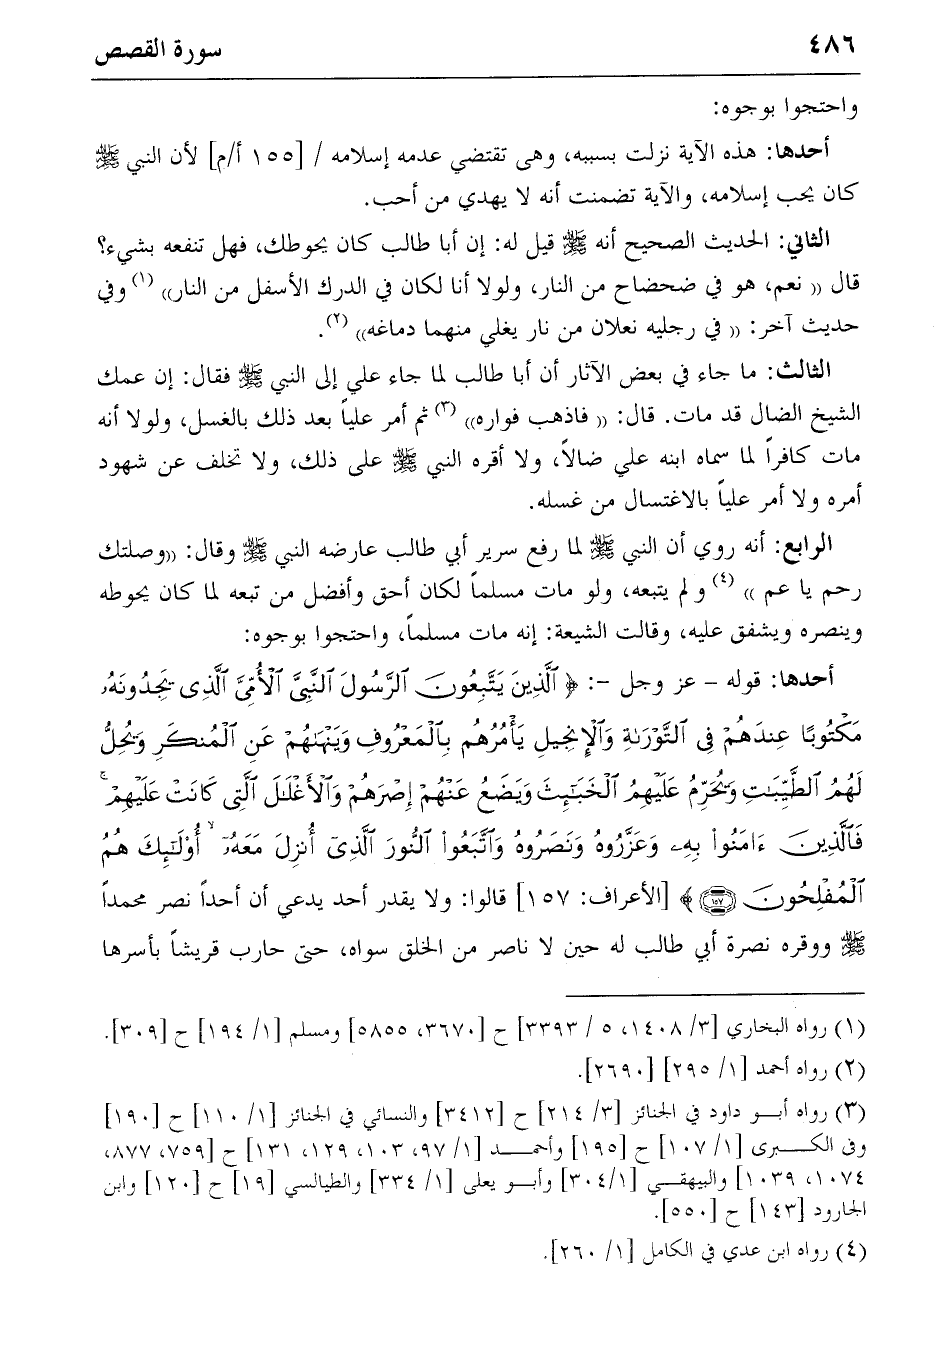 ٤٨٦
سورة القصص
واحتجوا بوجوه:
أحدها: هذه الآية نزلت بسببه، وهى تقتضي عدمه إسلامه / [١٥٥ أ/م] لأن النبي ﷺ
كان يحب إسلامه، والآية تضمنت أنه لا يهدي من أحب.
الثاني: الحديث الصحيح أنه ﷺ قيل له: إن أبا طالب كان يحوطك، فهل تنفعه بشيء؟
قال (( نعم، هو في ضحضاح من النار، ولولا أنا لكان في الدرك الأسفل من النار)) (١) وفي
حديث آخر: (( في رجليه نعلان من نار يغلي منهما دماغه)) (٢).
الثالث: ما جاء في بعض الآثار أن أبا طالب لما جاء علي إلى النبي ﷺ فقال: إن عمك
الشيخ الضال قد مات. قال: (( فاذهب فواره)) (٣) ثم أمر علياً بعد ذلك بالغسل، ولولا أنه
مات كافراً لما سماه ابنه علي ضالاً، ولا أقره النبي ﷺ على ذلك، ولا تخلف عن شهود
أمره ولا أمر علياً بالاغتسال من غسله.
الرابع: أنه روي أن النبي ﷺ لما رفع سرير أبي طالب عارضه النبي ﷺ وقال: ((وصلتك
رحم يا عم )) (٤) و لم يتبعه، ولو مات مسلماً لكان أحق وأفضل من تبعه لما كان يحوطه
وينصره ويشفق عليه، وقالت الشيعة: إنه مات مسلماً، واحتجوا بوجوه:
أحدها: قوله - عز وجل -: ﴿ ٱلَّذِينَ يَتَّبِعُونَ ٱلرَّسُولَ ٱلنَّبِىَّ ٱلْأُمِّىَّ ٱلَّذِى يَجِدُونَهُۥ
مَكْتُوبًا عِندَهُمْ فِى ٱلتَّوْرَىٰةِ وَٱلْإِنجِيلِ يَأْمُرُهُم بِٱلْمَعْرُوفِ وَيَنْهَىٰهُمْ عَنِ ٱلْمُنكَرِ وَيُحِلُّ
لَهُمُ ٱلطَّيِّبَٰتِ وَيُحَرِّمُ عَلَيْهِمُ ٱلْخَبَٰٓئِثَ وَيَضَعُ عَنْهُمْ إِصْرَهُمْ وَٱلْأَغْلَٰلَ ٱلَّتِى كَانَتْ عَلَيْهِمْ ۚ
فَٱلَّذِينَ ءَامَنُوا۟ بِهِۦ وَعَزَّرُوهُ وَنَصَرُوهُ وَٱتَّبَعُوا۟ ٱلنُّورَ ٱلَّذِىٓ أُنزِلَ مَعَهُۥٓ ۙ أُو۟لَٰٓئِكَ هُمُ
ٱلْمُفْلِحُونَ ١٥٧ ﴾ [الأعراف: ١٥٧] قالوا: ولا يقدر أحد يدعي أن أحداً نصر محمداً
ﷺ ووقره نصرة أبي طالب له حين لا ناصر من الخلق سواه، حتى حارب قريشاً بأسرها
(١) رواه البخاري [٣/ ١٤٠٨، ٥ / ٣٣٩٣] ح [٣٦٧٠، ٥٨٥٥] ومسلم [١/ ١٩٤] ح [٣٠٩].
(٢) رواه أحمد [١/ ٢٩٥] [٢٦٩٠].
(٣) رواه أبــو داود في الجنائز [٣/ ٢١٤] ح [٣٤١٢] والنسائي في الجنائز [١/ ١١٠] ح [١٩٠]
وفى الكـــــبرى [١/ ١٠٧] ح [١٩٥] وأحمــــد [١/ ٩٧، ١٠٣، ١٢٩، ١٣١] ح [٧٥٩، ٨٧٧،
١٠٧٤، ١٠٣٩] والبيهقــي [٣٠٤/١] وأبــو يعلى [١/ ٣٣٤] والطيالسي [١٩] ح [١٢٠] وابن
الجارود [١٤٣] ح [٥٥٠].
(٤) رواه ابن عدي في الكامل [١/ ٢٦٠].